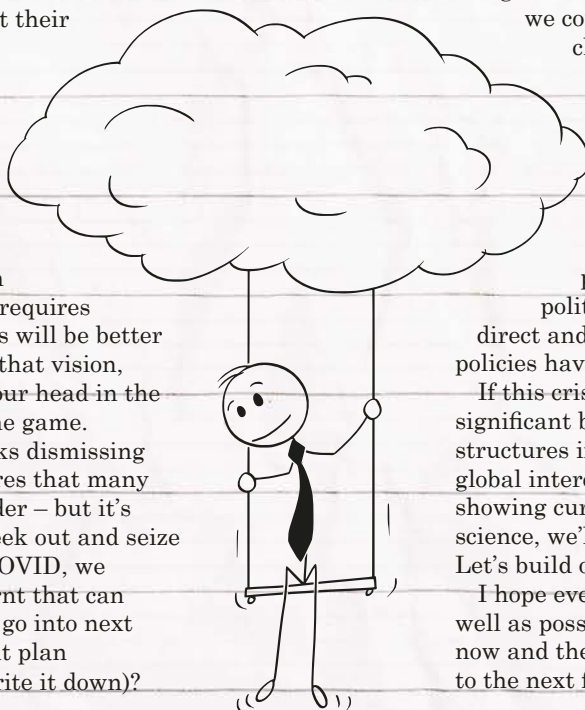 t their
requires
s will be better
that vision,
our head in the
e game.
ks dismissing
res that many
der – but it's
eek out and seize
OVID, we
rnt that can
go into next
t plan
rite it down)?
we co
cl
polit
direct and
policies hav
If this cris
significant b
structures i
global interc
showing cur
science, we'l
Let's build o
I hope eve
well as poss
now and the
to the next f